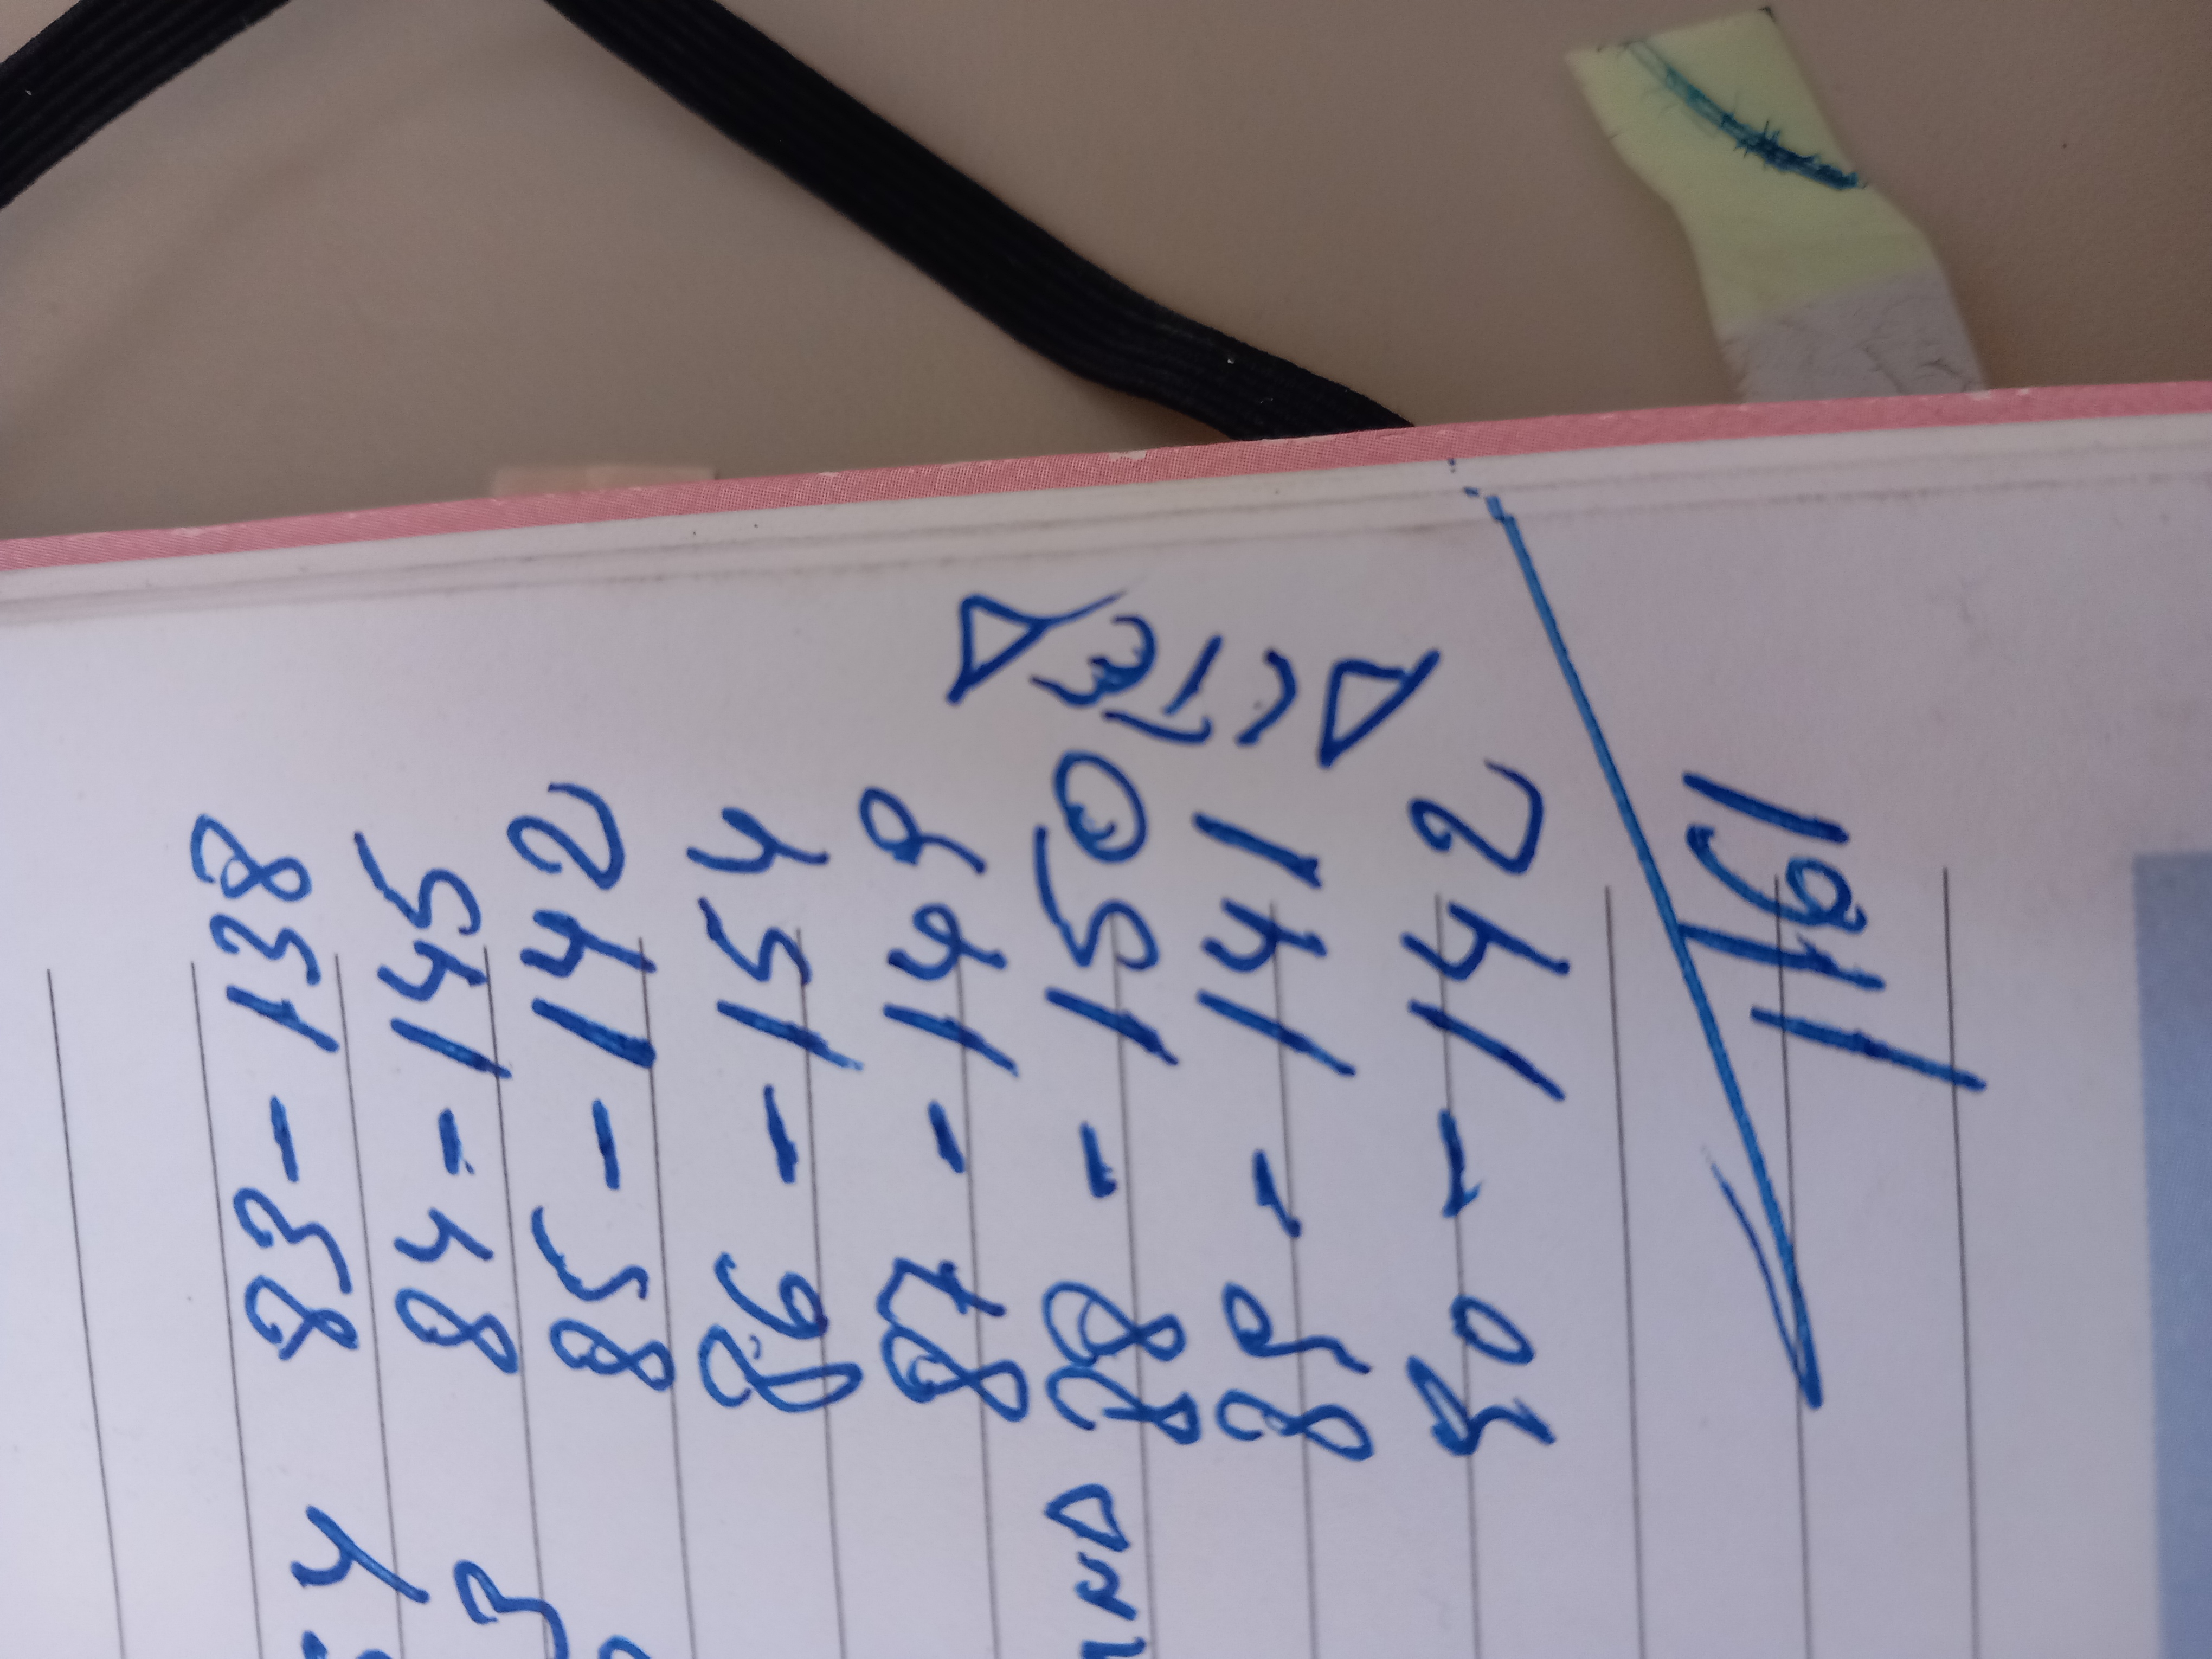 83 - 138
84 - 145
85 - 142
86 - 154
87 - 149
88 - 150
89 - 141
90 - 142
1161